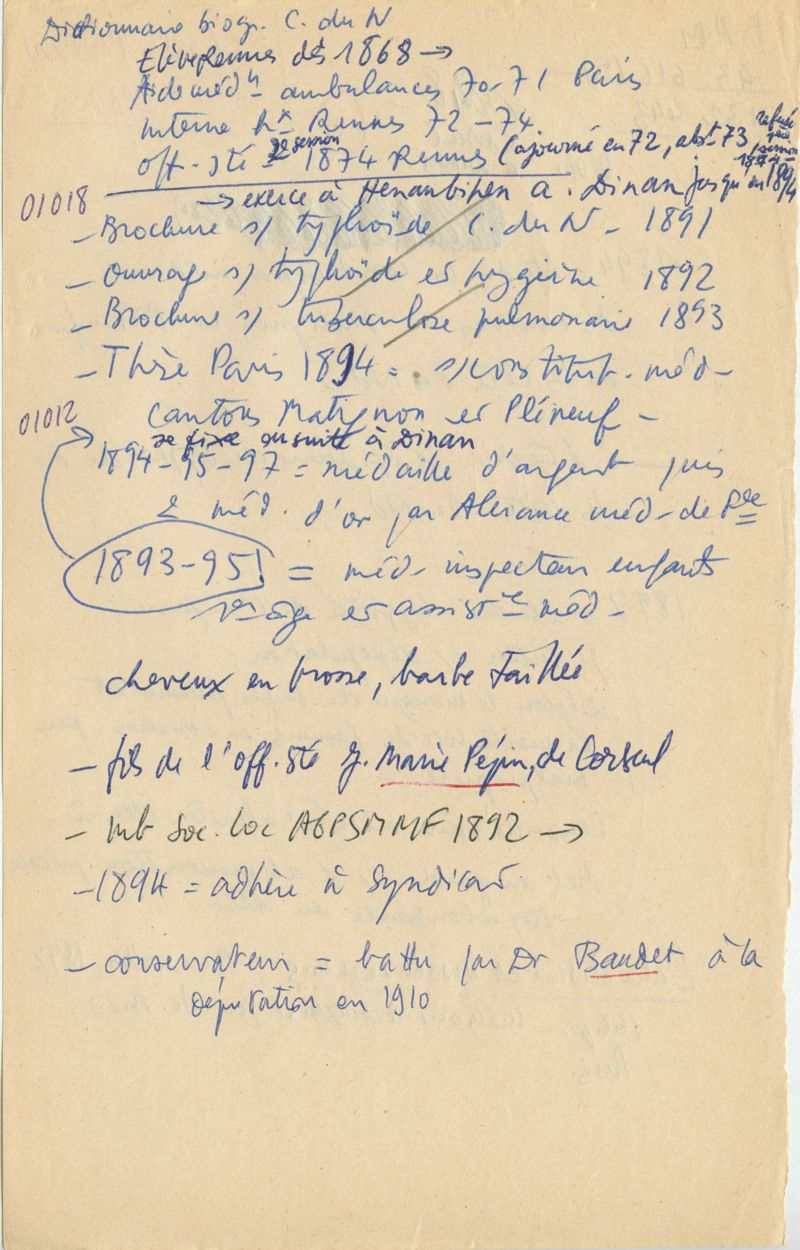 Dictionnaire biogr. C. du N
Elève Rennes dès 1868 →
Aide méd^n ambulances 70-71 Paris
Interne h^x Rennes 72-74
refusé
1ère
session
1874
2e session
off. sté 1874 Rennes (ajourné en 72, abst 73,
→ exerce à Henanbihen a. Dinan jusqu'en 1894
01018
- Brochure s/ typhoïde C. du N - 1891
- Ouvrage s/ typhoïde et hygiène 1892
- Brochure s/ tuberculose pulmonaire 1893
- Thèse Paris 1894 = s/ constitut. méd-
01012
cantons Matignon et Pléneuf -
se fixe ensuite à Dinan
1894-95-97 = médaille d'argent puis
2 méd. d'or par Académie méd- de P
1893-95! = méd- inspecteur enfants
1er âge et assist^ce méd -
cheveux en brosse, barbe taillée
- fils de l'off. sté J. Marie Pépin, de Corseul
- mb Soc. loc AGPSMMF 1892 →
- 1894 = adhère à Syndicat
- conservateur = battu par Dr Baudet à la
députation en 1910